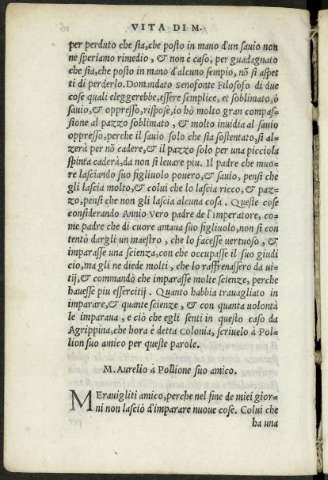 VITA DI M.
per perduto che sia, che posto in mano d'un sauio non
ne speriamo rimedio, & non è caso, per guadagnato
che sia, che posto in mano d'alcuno sempio, nõ si aspet
ti di perderlo. Domãdato senofonte Filosofo di due
cose quali eleggerebbe, essere semplice, et sublimato, ò
sauio, & oppresso, rispose, io hò molto gran compas-
sione al pazzo soblinato, & molto inuidia al sauio
oppresso, perche il sauio solo che sia sostentato, si al-
zerà per nò cadere, & il pazzo solo per una picciola
spinta caderà, da non si leuare piu. Il padre che muo-
re lasciando suo figliuolo pouero, & sauio, pensi che
gli lascia molto, & colui che lo lascia ricco, & paz-
zo, pensi che non gli lascia alcuna cosa. Queste cose
considerando Annio Vero padre de l'imperatore, co-
me padre che di cuore amaua suo figliuolo, non si con
tentò dargli un maestro, che lo facesse uertuoso, &
imparasse una scienza, con che occupasse il suo giudi
cio, ma gli ne diede molti, che lo raffrenassero da ui-
tij, & commandò che imparasse molte scienze, perche
hauesse piu essercitij. Quanto habbia trauagliato in
imparare, & quante scienze, & con quanta uolontà
le imparaua, e ciò che egli sentì in questo caso da
Agrippina, che hora è detta Colonia, scriuelo à Pol-
lion suo amico per queste parole.
M. Aurelio à Pollione suo amico.
MErauigliti amico, perche nel fine de miei gior-
ni non lasciò d'imparare nuoue cose. Colui che
ha una